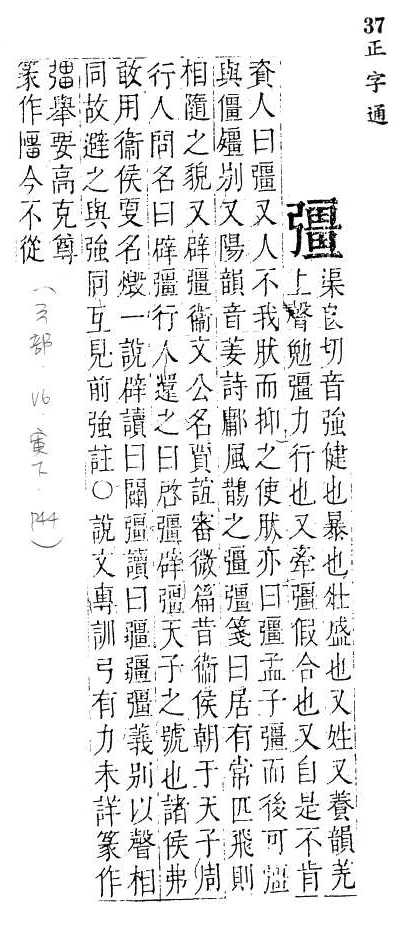 37
正字通
彊
渠良切音強健也暴也壯盛也又姓又養韻羌
上聲勉彊力行也又牽彊假合也又自是不肯
資人曰彊又人不我肰而抑之使肰亦曰彊孟子彊而後可
與僵殭別又陽韻音姜詩鄘風鵲之彊彊箋曰居有常匹飛則
相隨之貌又辟彊衞文公名賈誼審微篇昔衞侯朝于天子周
行人問名曰辟彊行人還之曰啓彊辟彊天子之號也諸侯弗
敢用衞侯更名燬一說辟讀曰闢彊讀曰疆疆彊義別以聲相
同故避之與強同互見前強註○說文專訓弓有力未詳篆作
舉要高克尊
篆作今不從
(弓部.V6.寅下.P44)